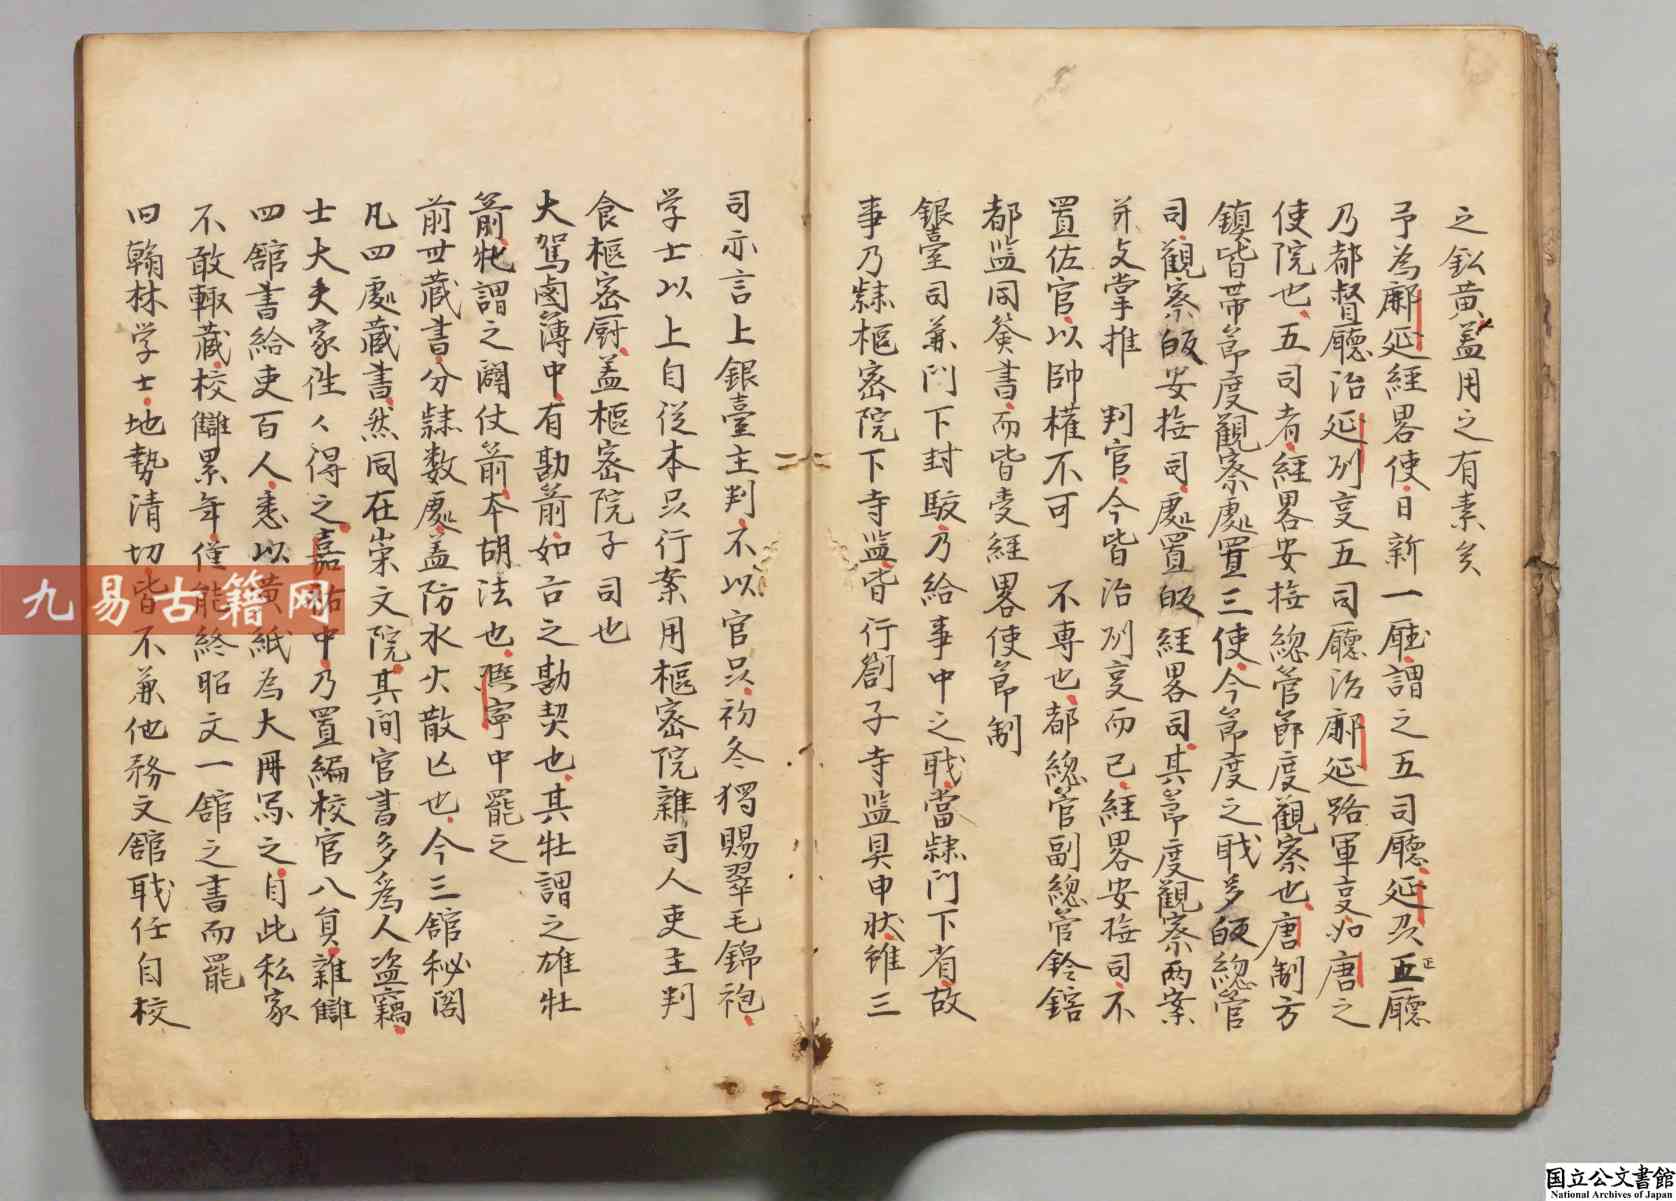 之鈆黄盖用之有素矣
予為鄜延經畧使日新一廳謂之五司廳延刅正五廳
乃都督廳治延刅事五司廳治鄜延路軍事如唐之
使院也五司者經畧安撫緫管節度觀察也唐制方
鎮皆帯節度觀察處置三使今節度之职多皈緫管
司觀察皈安撫司處置皈經畧司其節度觀察兩案
并支掌推 判官今皆治刅事而已經畧安撫司不
置佐官以帥權不可 不專也都緫管副緫管鈐鎋
都监同簽書而皆受經畧使節制
銀臺司兼门下封駁乃給事中之职當隸门下省故
事乃隸樞密院下寺监皆行劄子寺监具申狀雖三
司亦言上銀臺主判不以官品初冬獨賜翠毛錦袍
学士以上自従本品行案用樞密院雜司人吏主判
食樞密厨盖樞密院子司也
大駕鹵薄中有勘箭如古之勘契也其牡謂之雄牡
箭牝謂之闢仗箭本胡法也熈寧中罷之
前丗藏書分隸数處盖防水火散亡也今三舘秘阁
凡四處藏書然同在崇文院其间官書多為人盗竊
士大夫家徃々得之嘉祐中乃置編校官八負雜讎
四舘書給吏百人悉以黄紙為大冊寫之自此私家
不敢輙藏校讎累年僅能終昭文一舘之書而罷
旧翰林学士地勢清切皆不兼他務文舘职任自校
九易古籍网
国立公文書館
National Archives of Japan